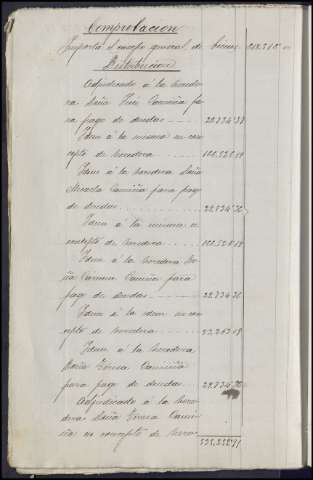 Comprobacion
Importa el cuerpo general de bienes
Distribucion
Adjudicado á la herede
ra Doña Camiña pa
ra pago de deudas 22.734'38
Idem á la misma en con
cepto de heredera 100.528'19
Idem á la heredera Doña
Camiña para pago
de deudas 22.734'36
Idem á la misma en
concepto de heredera 100.528'19
Idem á la heredera Do
ña Carmen Camiña para
pago de deudas 22.734'36
Idem á la idem en con
cepto de heredera 53.263'18
Idem á la heredera
Doña Teresa Camiña
para pago de deudas 22.734'36
Adjudicado á la here
dera Doña Teresa Cami
ña en concepto de here